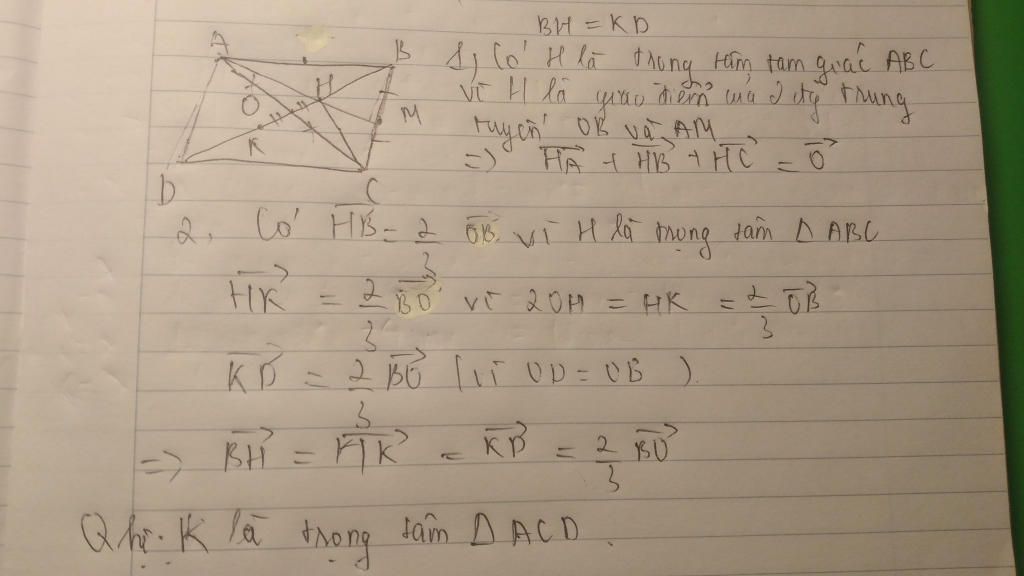 BH = KD
A B H M O K D C
1, Có H là trung tâm tam giác ABC
vì H là giao điểm của 2 đg trung
tuyến OB và AM
=> HA + HB + HC = O
2, Có HB = 2/3 OB vì H là trọng tâm Δ ABC
HK = 2/3 BO vì 2OH = HK = 2/3 OB
KD = 2/3 BO (vì OD = OB)
=> BH = HK = KD = 2/3 BO
K là trọng tâm Δ ACD.